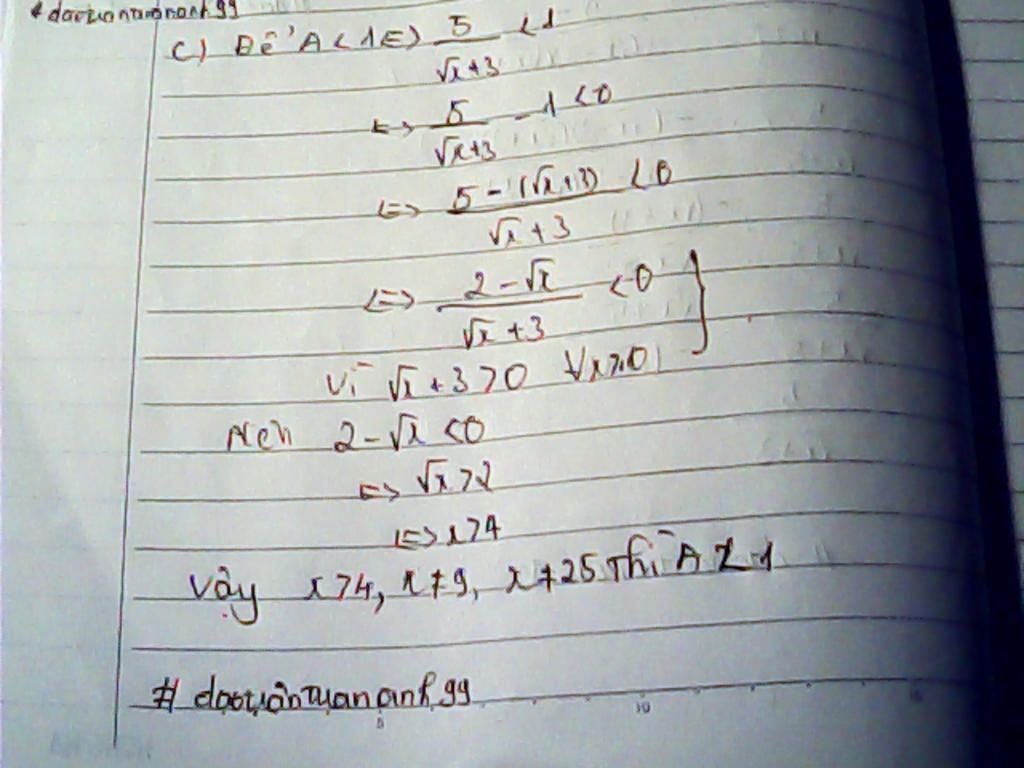 # daotuantuananh99
c) Để A < 1 <=> 5/(√x+3) < 1
<=> 5/(√x+3) - 1 < 0
<=> (5 - (√x+3))/(√x+3) < 0
<=> (2 - √x)/(√x+3) < 0 }
Vì √x + 3 > 0 ∀x≥0
Nên 2 - √x < 0
<=> √x > 2
<=> x > 4
Vậy x > 4, x ≠ 9, x ≠ 25 thì A < 1
# daotuântuananh99
5 10 15